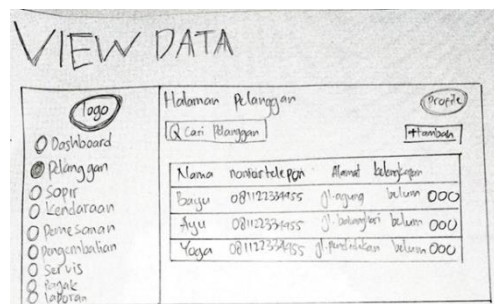 VIEW DATA
logo
Dashboard
Pelanggan
Sopir
Kendaraan
Pemesanan
Pengembalian
Servis
Pajak
laporan
Halaman Pelanggan
Profile
Cari Pelanggan
+tambah
Nama nomor telepon Alamat
Bayu 081122334455 jl-agung belum
Ayu 081122334455 belum
Yoga 081122334455 jl-pendidikan belum